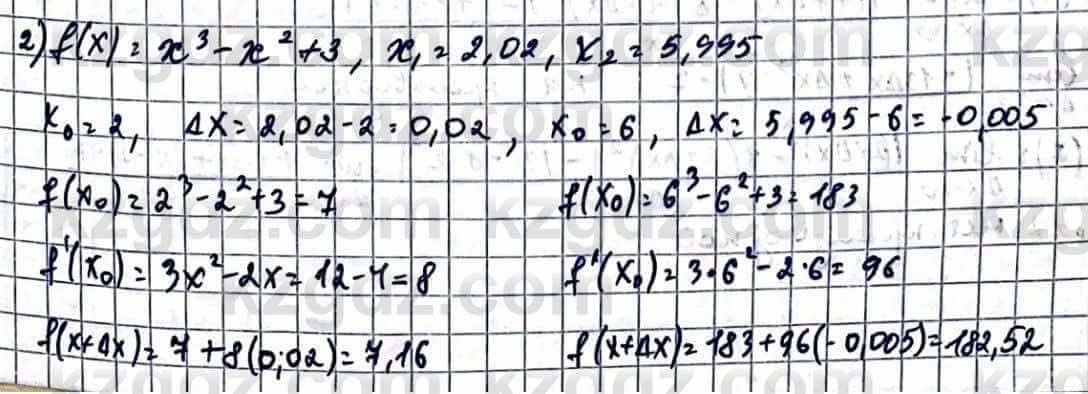 2) f(x) = x³ - x² + 3, x₁ = 2,02, x₂ = 5,995
x₀ = 2, Δx = 2,02 - 2 = 0,02, x₀ = 6, Δx = 5,995 - 6 = -0,005
f(x₀) = 2³ - 2² + 3 = 7 f(x₀) = 6³ - 6² + 3 = 183
f'(x₀) = 3x² - 2x = 12 - 4 = 8 f'(x₀) = 3·6² - 2·6 = 96
f(x+Δx) = 7 + 8(0,02) = 7,16 f(x+Δx) = 183 + 96(-0,005) = 182,52
kzgdz.com